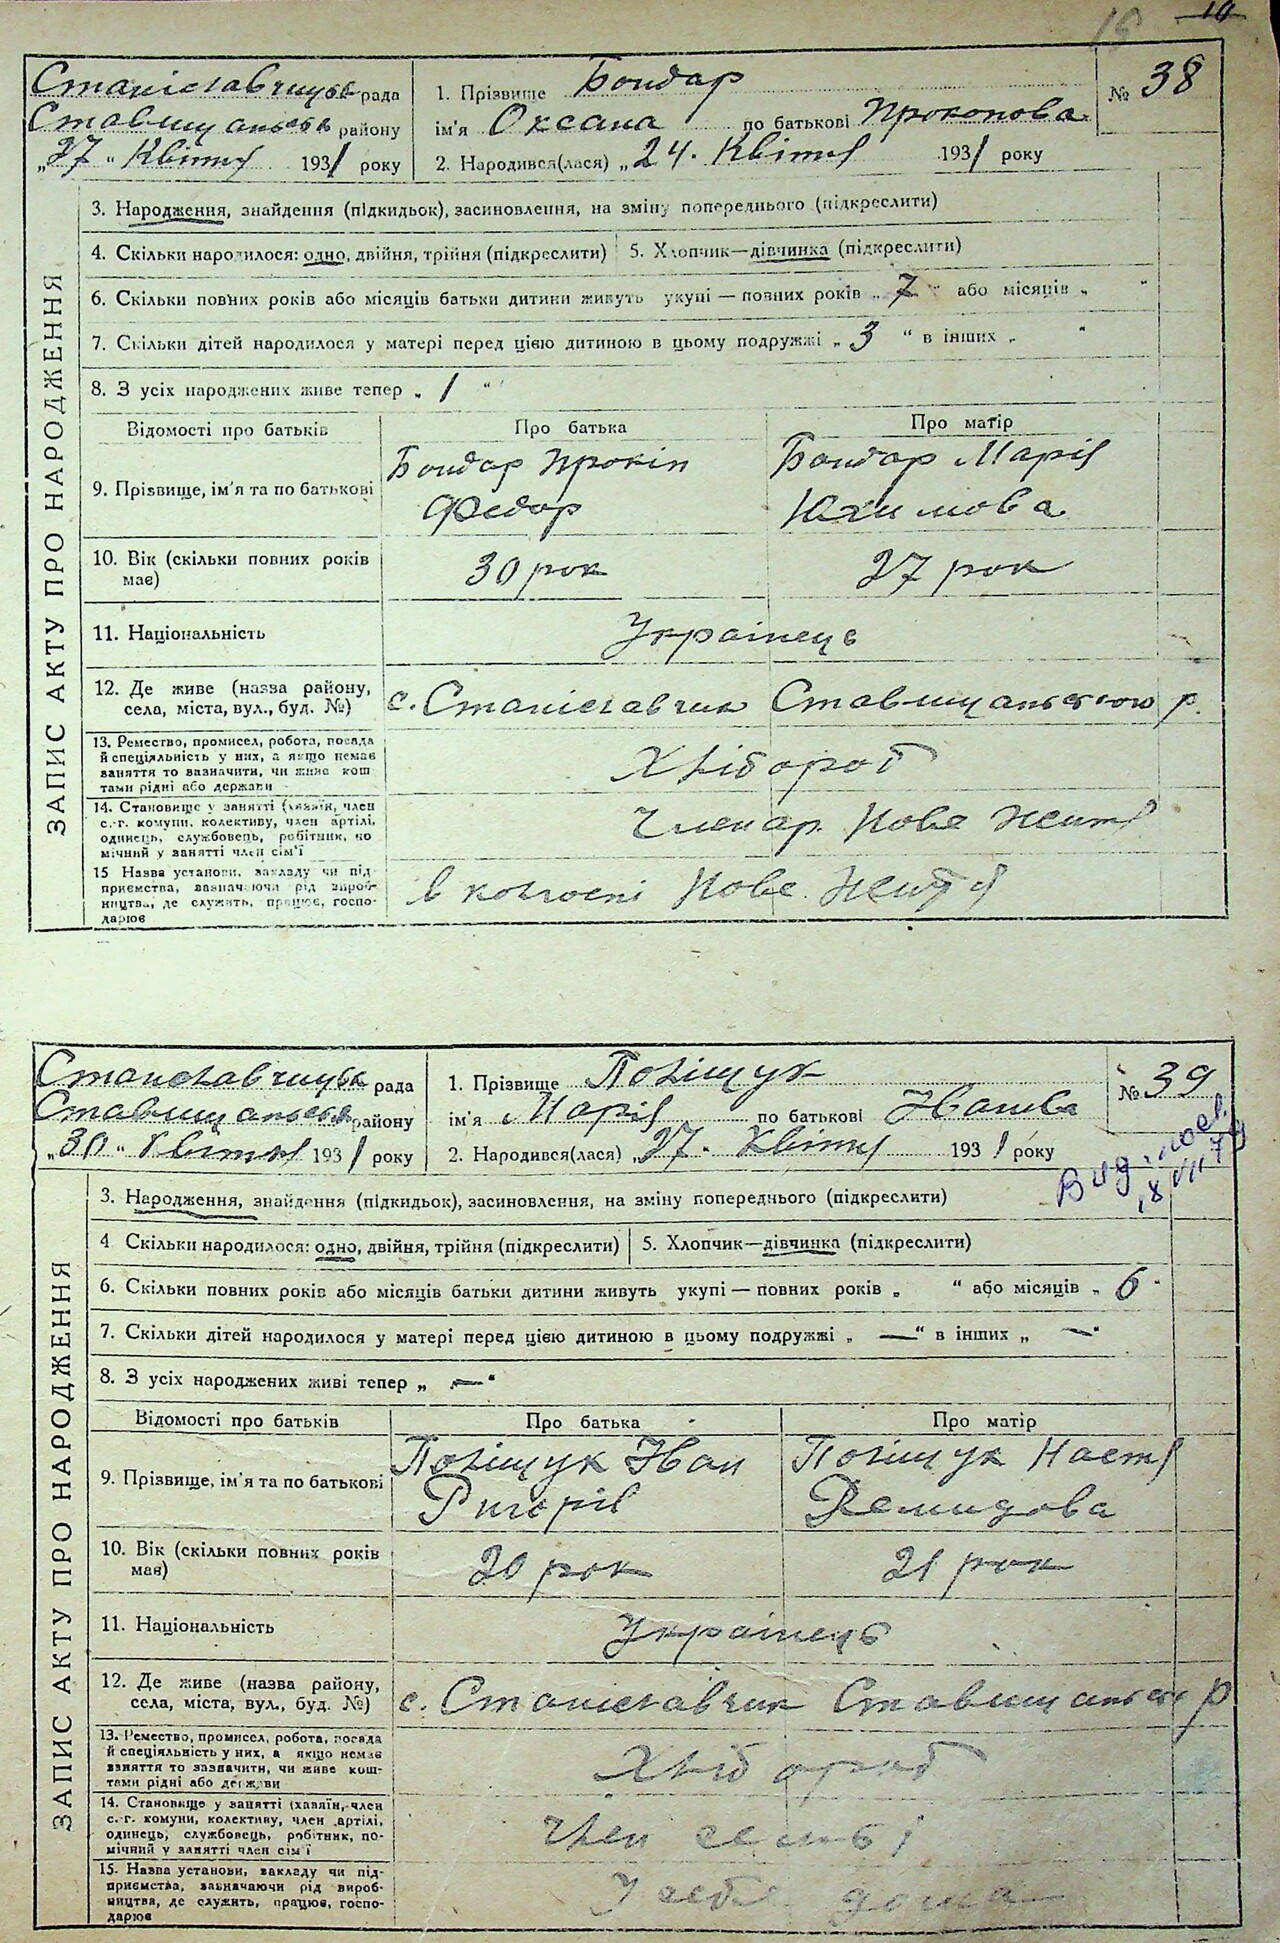 16 10
Станіславчицьк рада
Ставищанськ району
„27“ Квітня 1931 року
1. Прізвище Бондар
ім'я Оксана по батькові Прокопова
2. Народився(лася) „24. Квітня 1931 року
№ 38
ЗАПИС АКТУ ПРО НАРОДЖЕННЯ
3. Народження, знайдення (підкидьок), засиновлення, на зміну попереднього (підкреслити)
4. Скільки народилося: одно, двійня, трійня (підкреслити) 5. Хлопчик—дівчинка (підкреслити)
6. Скільки повних років або місяців батьки дитини живуть укупі — повних років „7“ або місяців „ “
7. Скільки дітей народилося у матері перед цією дитиною в цьому подружжі „3“ в інших „ “
8. З усіх народжених живе тепер „1“
Відомості про батьків Про батька Про матір
9. Прізвище, ім'я та по батькові
Бондар Прокіп
Федор
Бондар Марія
Юхимова
10. Вік (скільки повних років
має)
30 рок 27 рок
11. Національність Українець
12. Де живе (назва району,
села, міста, вул., буд. №)
с. Станіславчик Ставищанського р.
13. Ремество, промисел, робота, посада
й спеціяльність у них, а якщо немає
заняття то вазначити, чи живе кош
тами рідні або держави
Хлібороб
14. Становище у занятті (хазяїн, член
с.-г. комуни, колективу, член артілі,
одинець, службовець, робітник, по
мічний у занятті член сім'ї
Член ар. Нове Життя
15 Назва установи, закладу чи під-
приємства, вазначаючи рід вироб-
ництва, де служить, працює, госпо-
дарює
в колгоспі Нове Життя
Станіславчицьк рада
Ставищанськ району
„30“ Квітня 1931 року
1. Прізвище Поліщук
ім'я Марія по батькові Іванова
2. Народився(лася) „27. Квітня 1931 року
№ 39
Вид. 18 VII 74
ЗАПИС АКТУ ПРО НАРОДЖЕННЯ
3. Народження, знайдення (підкидьок), засиновлення, на зміну попереднього (підкреслити)
4 Скільки народилося: одно, двійня, трійня (підкреслити) 5. Хлопчик—дівчинка (підкреслити)
6. Скільки повних років або місяців батьки дитини живуть укупі — повних років „ “ або місяців „6“
7. Скільки дітей народилося у матері перед цією дитиною в цьому подружжі „—“ в інших „—“
8. З усіх народжених живі тепер „—“
Відомості про батьків Про батька Про матір
9. Прізвище, ім'я та по батькові
Поліщук Іван
Ригорів
Поліщук Настя
Демидова
10. Вік (скільки повних років
має)
20 рок 21 рок
11. Національність Українець
12. Де живе (назва району,
села, міста, вул., буд. №)
с. Станіславчик Ставищанськ р
13. Ремество, промисел, робота, посада
й спеціяльність у них, а якщо немає
заняття то зазначити, чи живе кош-
тами рідні або держави
Хлібороб
14. Становище у занятті (хазяїн, член
с.-г. комуни, колективу, член артілі,
одинець, службовець, робітник, по-
мічний у занятті член сім'ї
член семьі
15. Назва установи, закладу чи під-
приємства, вазначаючи рід вироб-
ництва, де служить, працює, госпо-
дарює
У себе дома